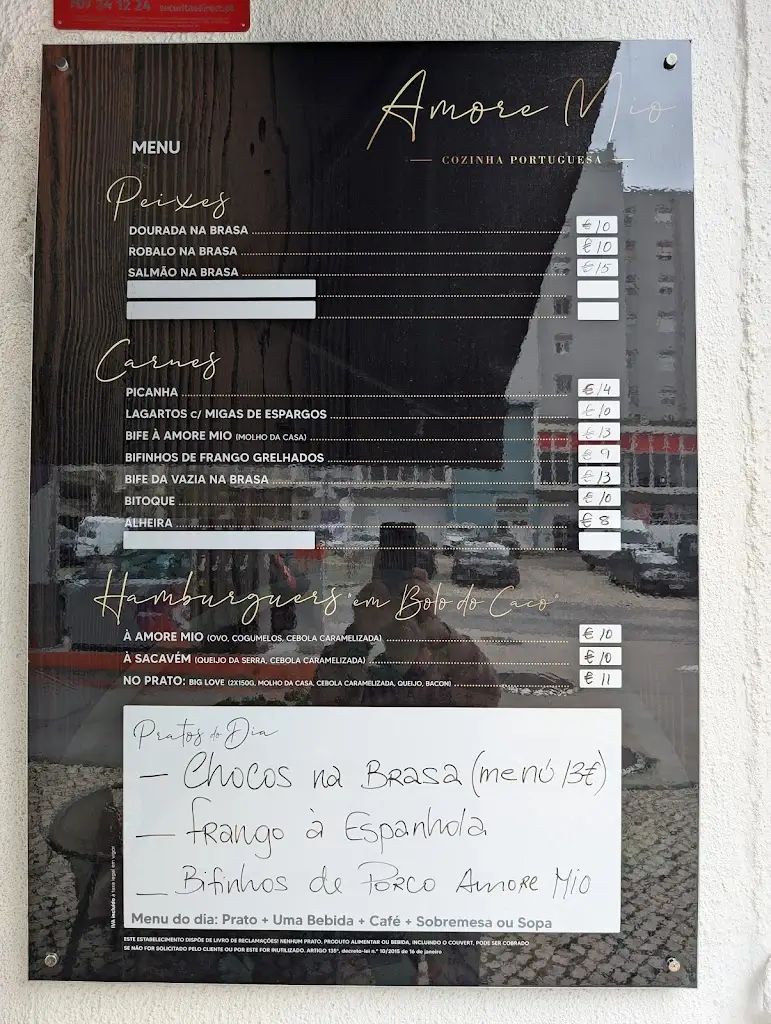 707 34 12 24 securitasdirect.pt
Amore Mio
COZINHA PORTUGUESA
MENU
Peixes
DOURADA NA BRASA € 10
ROBALO NA BRASA € 10
SALMÃO NA BRASA € 15
Carnes
PICANHA € 14
LAGARTOS c/ MIGAS DE ESPARGOS € 10
BIFE À AMORE MIO (MOLHO DA CASA) € 13
BIFINHOS DE FRANGO GRELHADOS € 9
BIFE DA VAZIA NA BRASA € 13
BITOQUE € 10
ALHEIRA € 8
Hamburguers "em Bolo do Caco"
À AMORE MIO (OVO, COGUMELOS, CEBOLA CARAMELIZADA) € 10
À SACAVÉM (QUEIJO DA SERRA, CEBOLA CARAMELIZADA) € 10
NO PRATO: BIG LOVE (2X150G, MOLHO DA CASA, CEBOLA CARAMELIZADA, QUEIJO, BACON) € 11
Pratos do Dia
— Chocos na Brasa (menú 13€)
— Frango à Espanhola
— Bifinhos de Porco Amore Mio
Menu do dia: Prato + Uma Bebida + Café + Sobremesa ou Sopa
IVA incluído à taxa legal em vigor
ESTE ESTABELECIMENTO DISPÕE DE LIVRO DE RECLAMAÇÕES! NENHUM PRATO, PRODUTO ALIMENTAR OU BEBIDA, INCLUINDO O COUVERT, PODE SER COBRADO
SE NÃO FOR SOLICITADO PELO CLIENTE OU POR ESTE FOR INUTILIZADO. ARTIGO 135º, decreto-lei n.º 10/2015 de 16 de janeiro